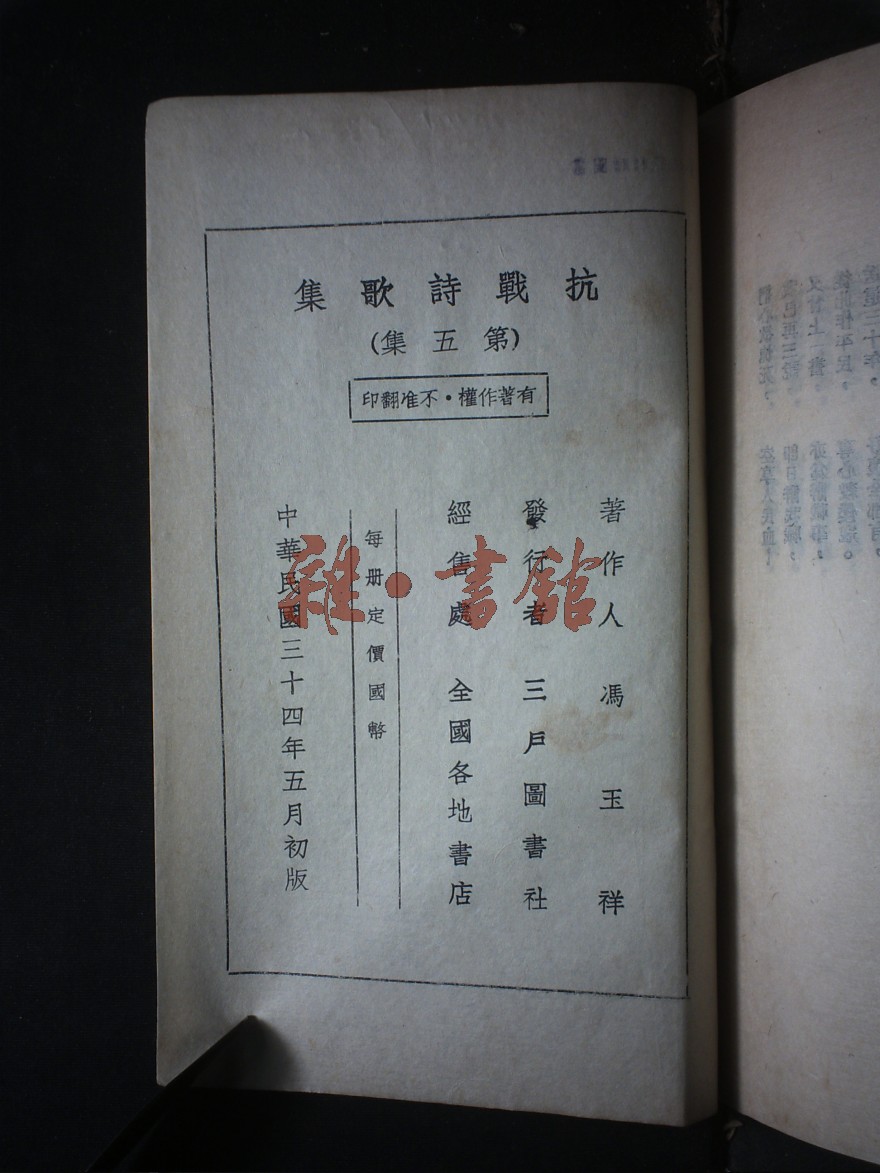 抗戰詩歌集
(第五集)
有著作權・不准翻印
著作人 馮玉祥
發行者 三戶圖書社
經售處 全國各地書店
每册定價國幣
中華民國三十四年五月初版
雜・書館